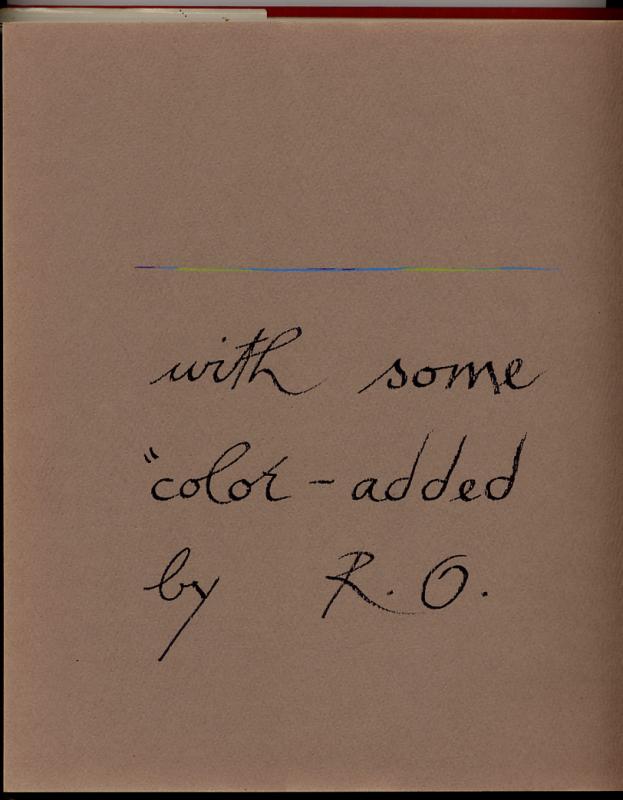 with some
"color-added
by R.O.